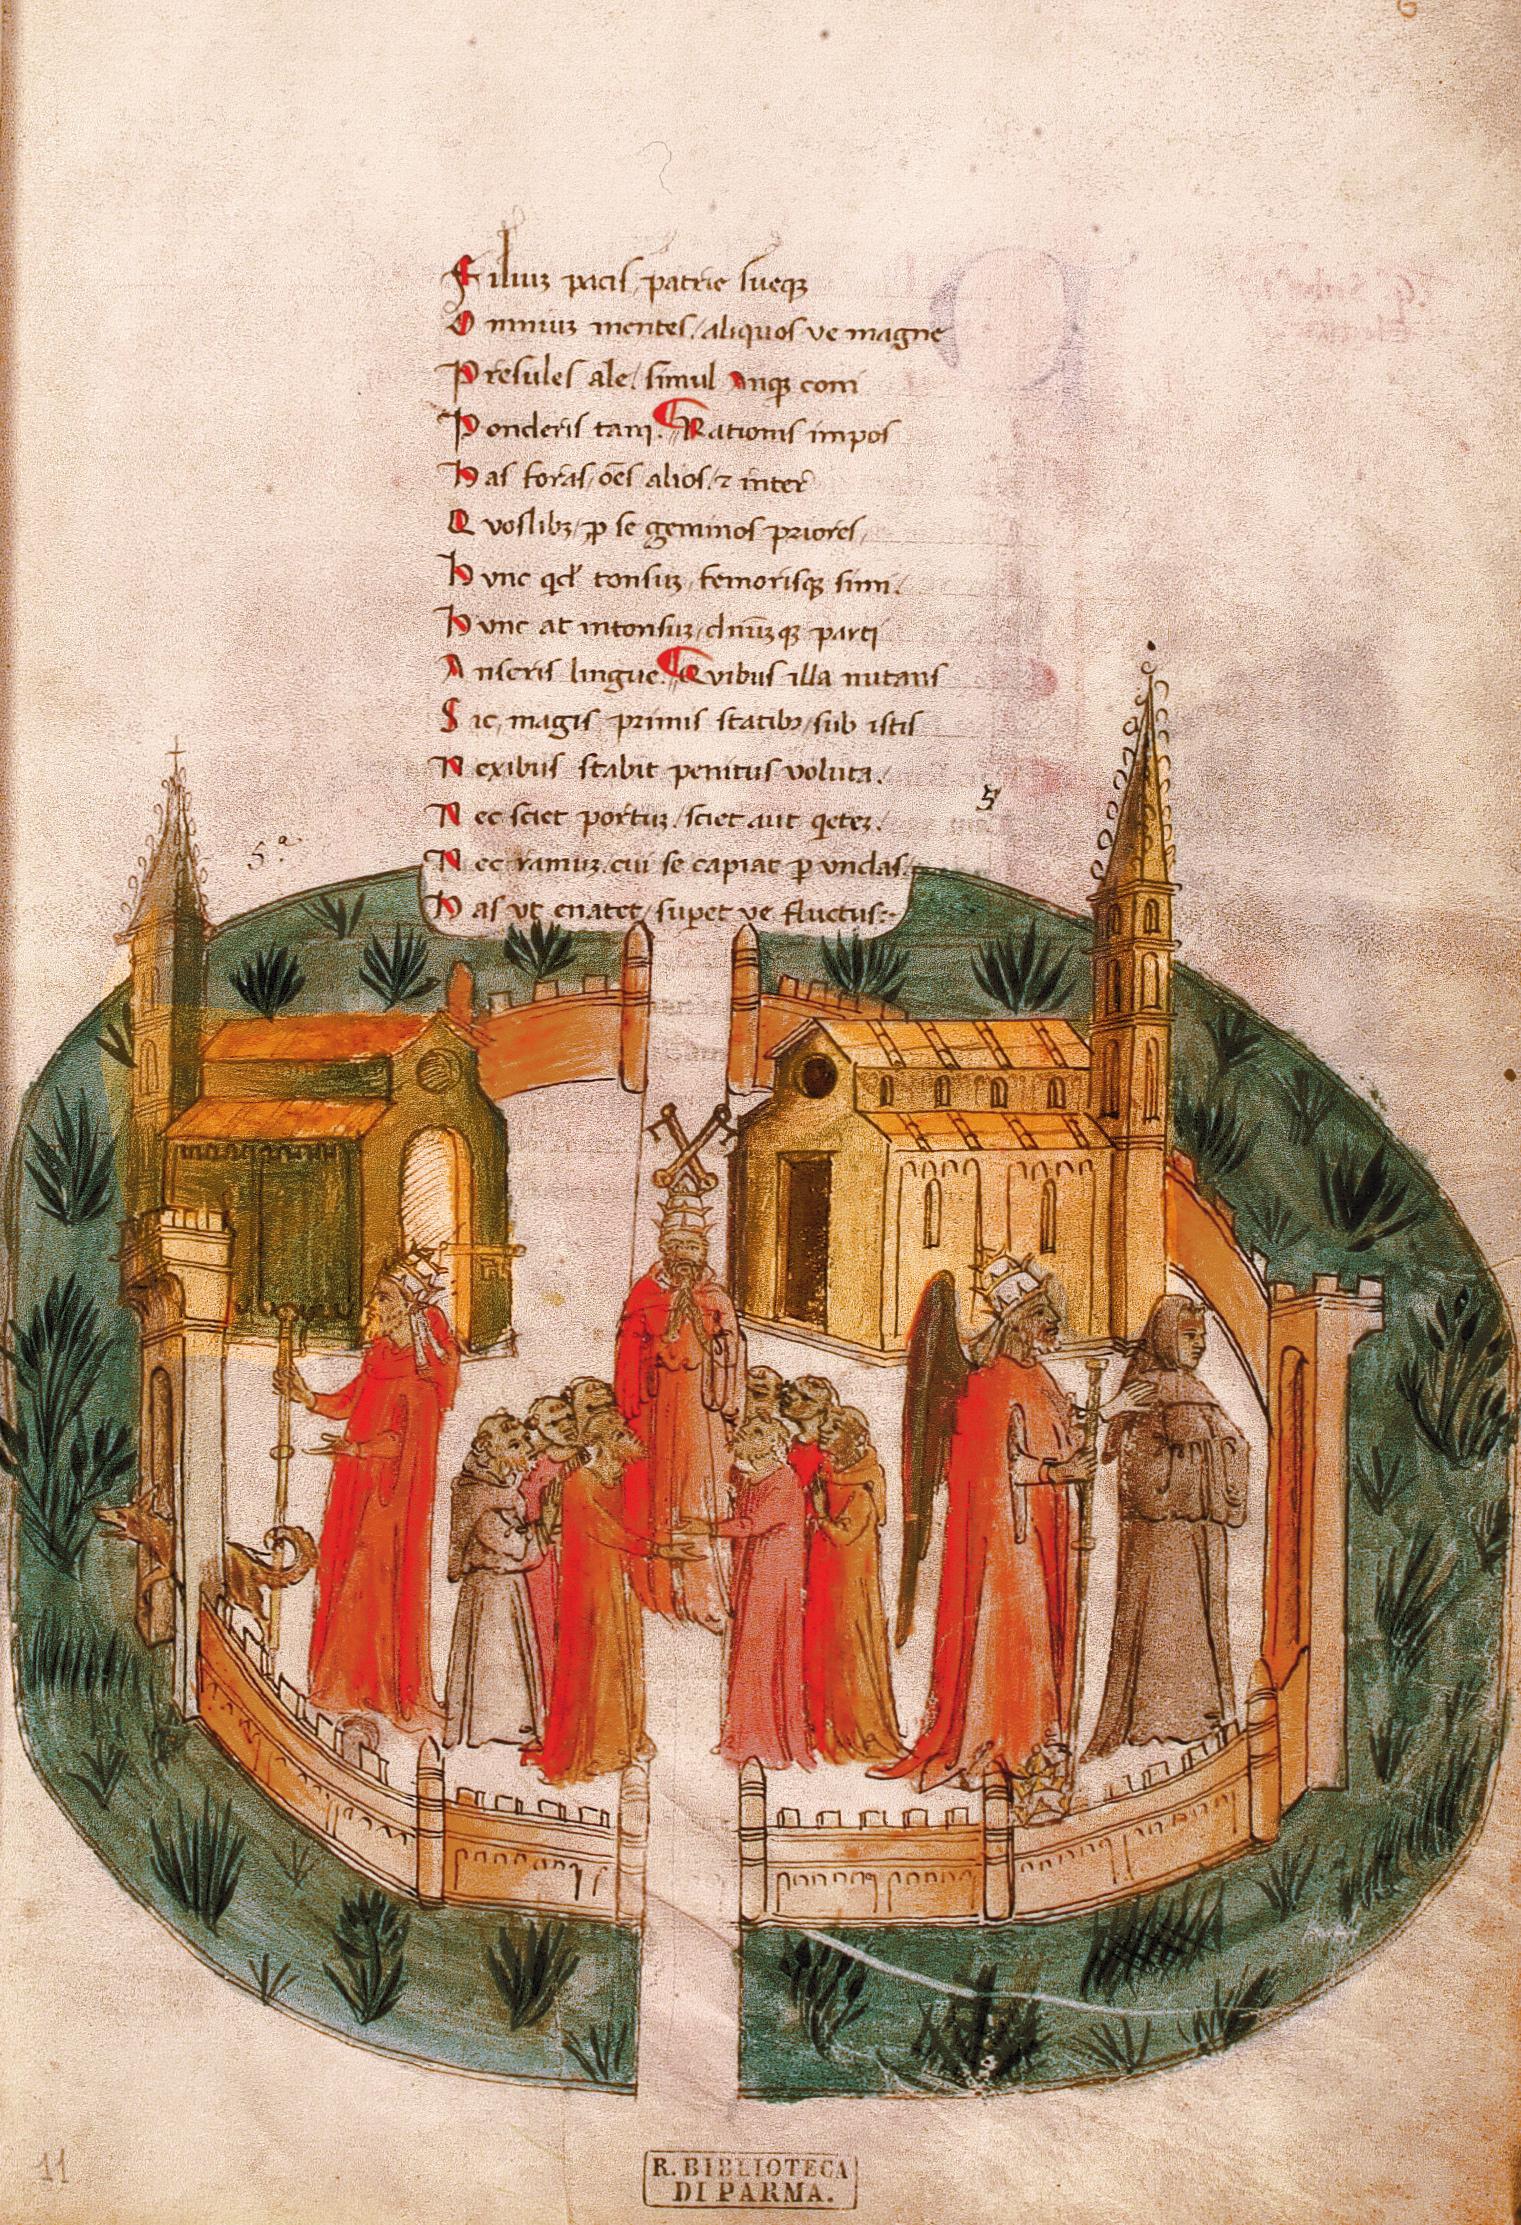 Filiuz pacis, patrie sueqz
Omniuz mentes, aliquos ve magne
Presules ale, simul Anqz comi
Ponderis tam. Rationis impos
Has foras, oēs alios, ⁊ inter
Quoslibz, ꝑ se geminos priores,
Hunc qd tonsuz, femorisqz sim.
Hunc at intonsuz, parti
Anseris lingue. Quibus illa nutans
Sic, magis primis statibz, sub istis
Nexibus stabit penitus voluta.
Nec sciet portuz, sciet aut qetez.
Nec ramuz, cui se capiat ꝑ vndas.
Has vt enatet, supet ve fluctus:-
5
5.ª
11
R. BIBLIOTECA
DI PARMA.